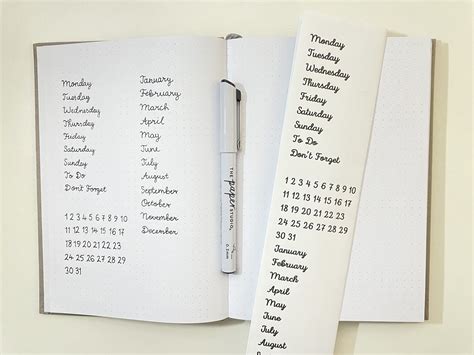 Monday
Tuesday
Wednesday
Thursday
Friday
Saturday
Sunday
To Do
Don't Forget
1 2 3 4 5 6 7 8 9 10
11 12 13 14 15 16 17
18 19 20 21 22 23
24 25 26 27 28 29
30 31
January
February
March
April
May
June
July
August
September
October
November
December
THE paper STUDIO
0.2mm
Monday
Tuesday
Wednesday
Thursday
Friday
Saturday
Sunday
To Do
Don't Forget
1 2 3 4 5 6 7 8 9 10
11 12 13 14 15 16 17
18 19 20 21 22 23
24 25 26 27 28 29
30 31
January
February
March
April
May
June
July
August